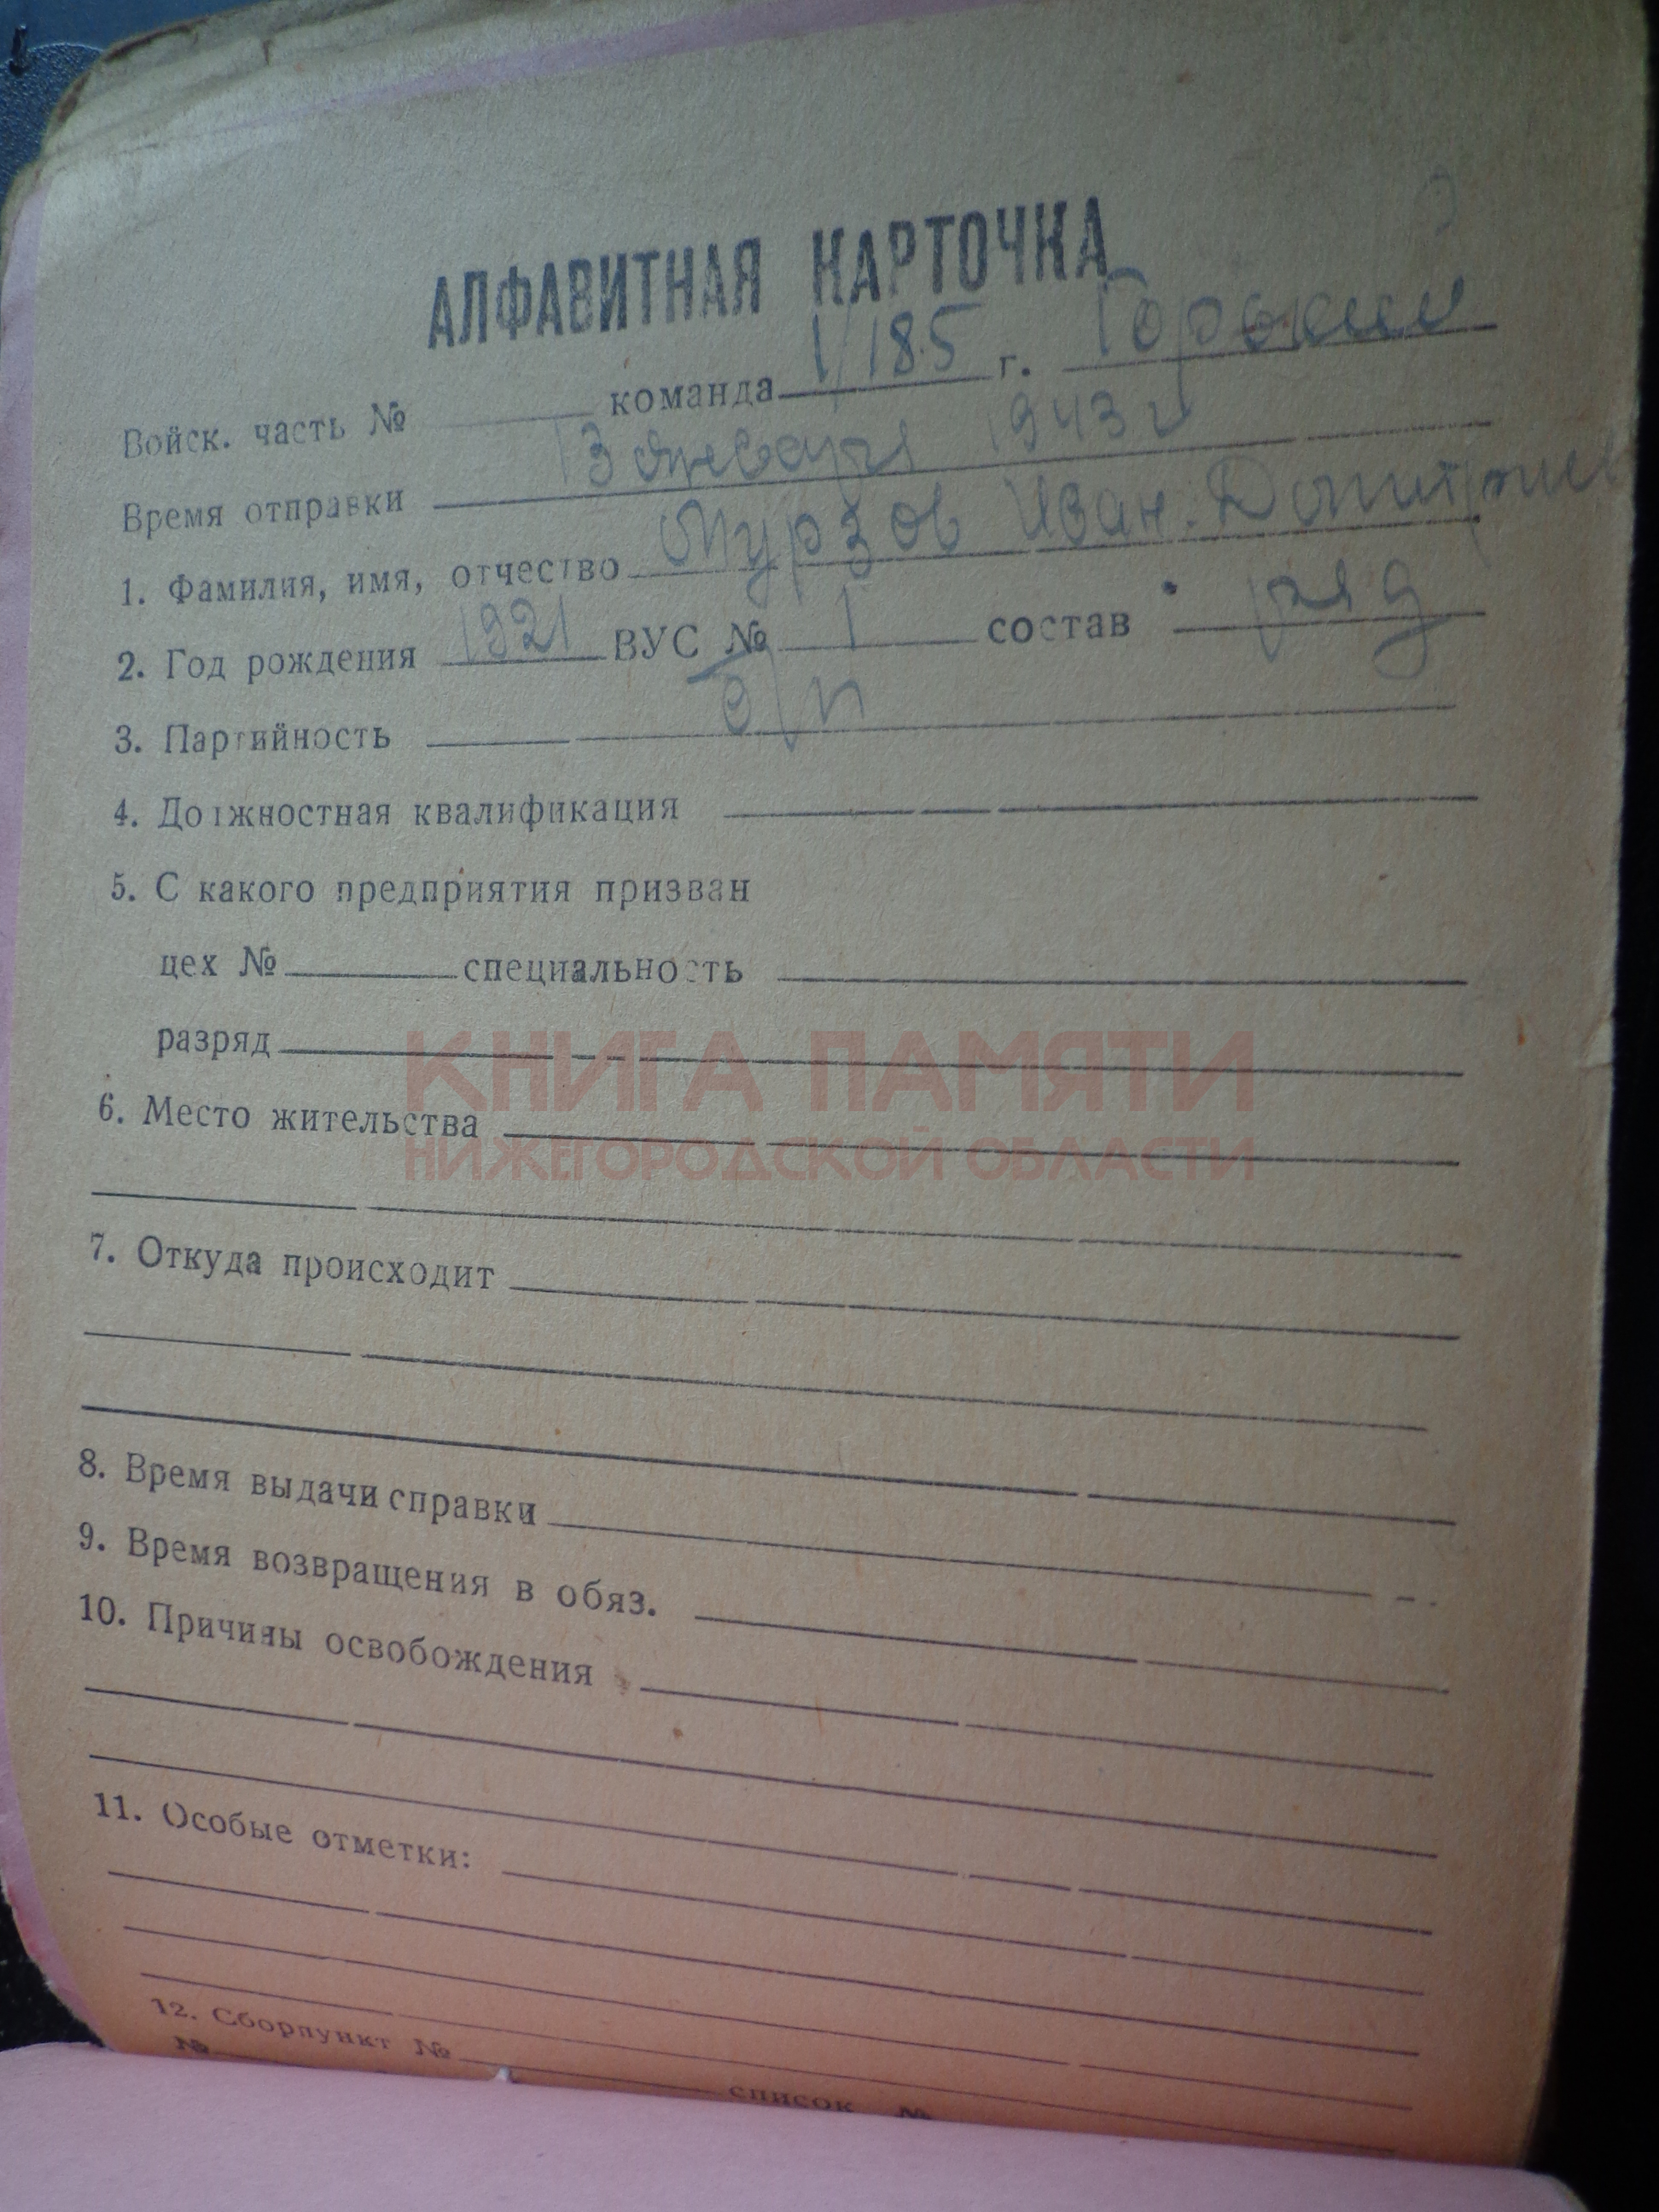 АЛФАВИТНАЯ КАРТОЧКА
Войск. часть № команда 1/185 г. Горький
Время отправки 13 января 1943 г
1. Фамилия, имя, отчество Мурзов Иван Дмитриев
2. Год рождения 1921 ВУС № 1 состав ряд
3. Партийность б/п
4. Должностная квалификация
5. С какого предприятия призван
цех № специальность
разряд
КНИГА ПАМЯТИ
6. Место жительства
НИЖЕГОРОДСКОЙ ОБЛАСТИ
7. Откуда происходит
8. Время выдачи справки
9. Время возвращения в обяз.
10. Причины освобождения
11. Особые отметки:
12. Сборпункт №
№ список №